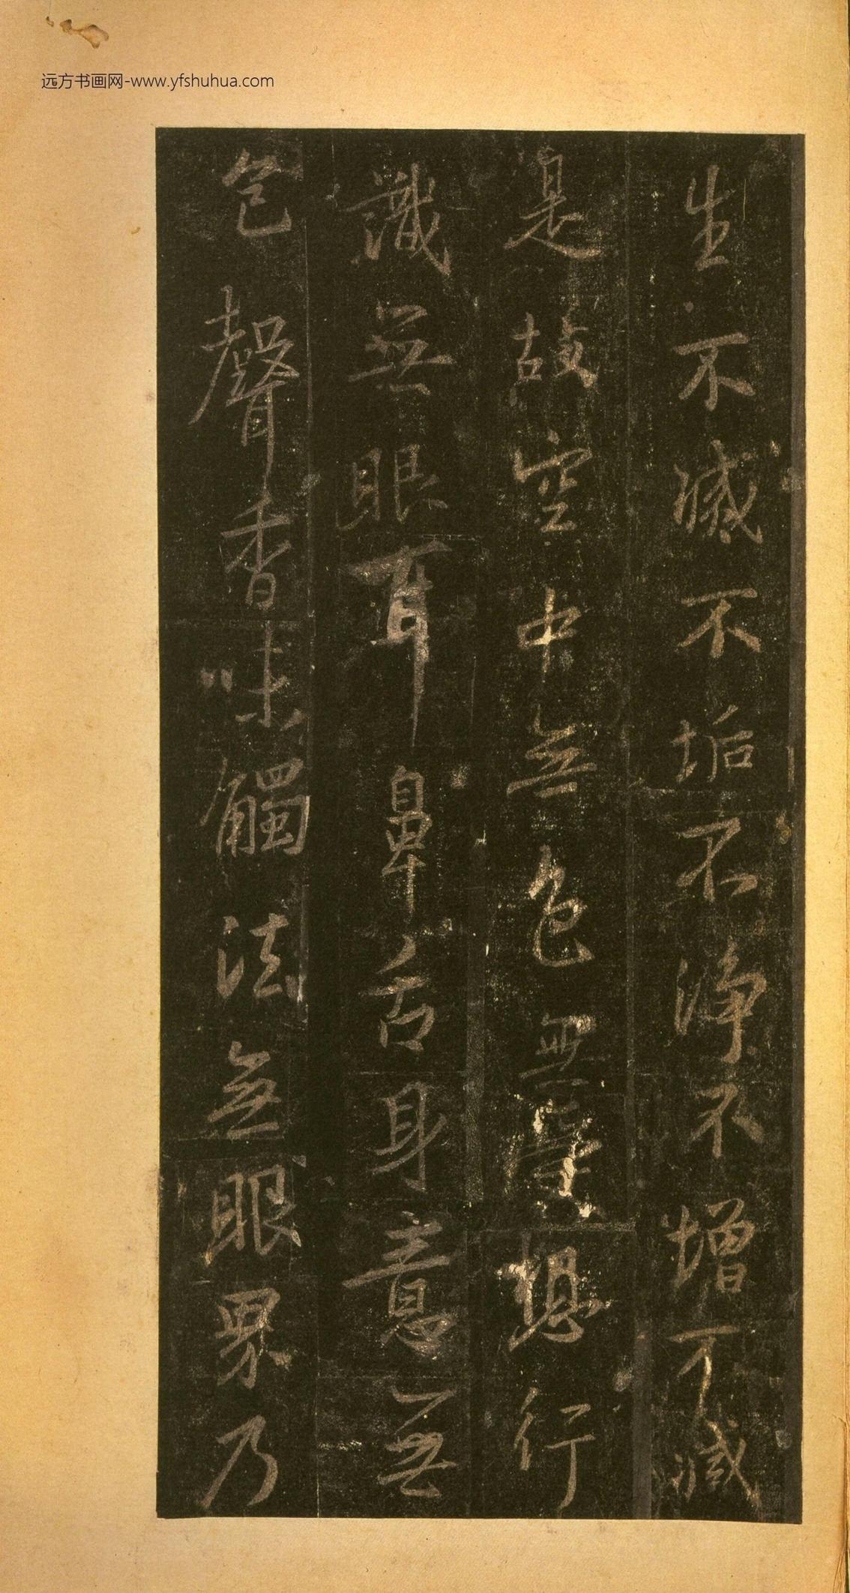 远方书画网-www.yfshuhua.com
生不滅不垢不淨不增不減
是故空中無色無受想行
識無眼耳鼻舌身意無
色聲香味觸法無眼界乃